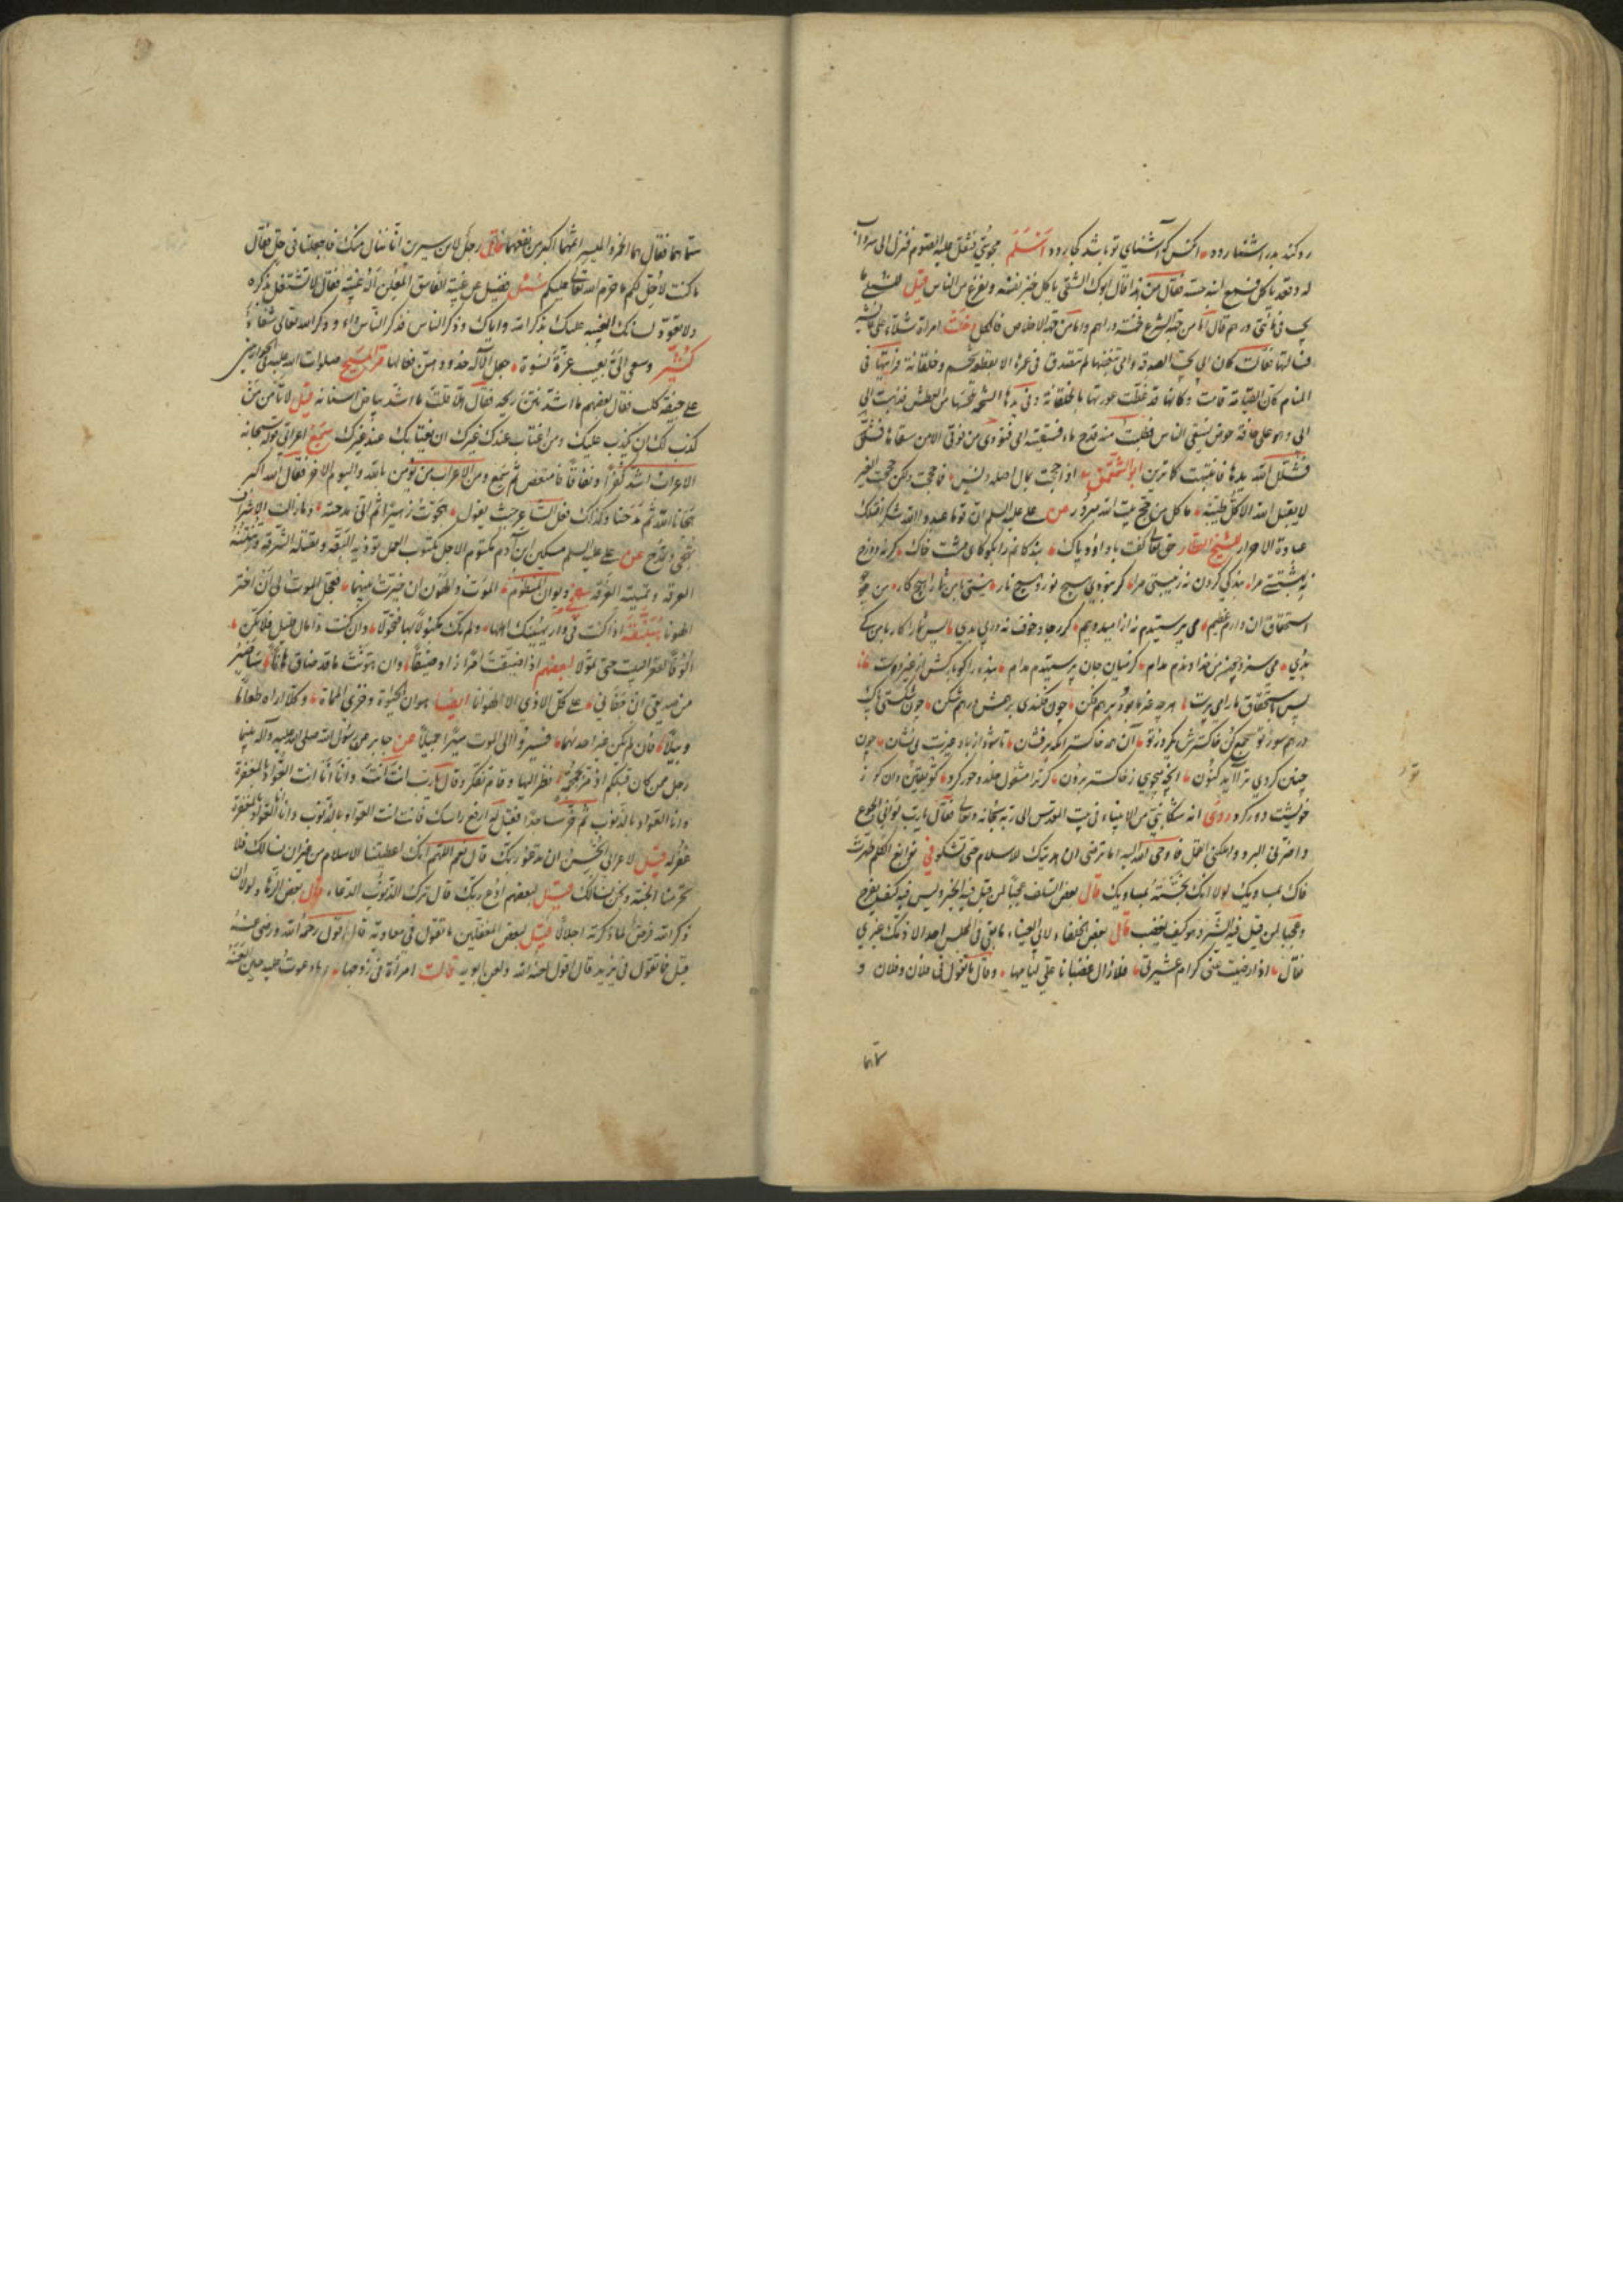 رو کند بدر اشتغار رود اکنس کو آشنای تو باشد کجا رود اسلم مجوسی فثقل علیه الصوم فنزل الی سرداب
له وقعد یاکل فسمع ابنه حسه فقال من هذا قال ابوک الشقی یاکل خبز نفسه ویفزع من الناس قیل للشبلی ما
یجب فی مائتی درهم قال اما من جهة الشرع خمسة دراهم واما من جهة الاخلاص فالکل دخلت امراة شلاء علی عایشه
فسالتها فقالت کان ابی یحب الصدقه وامی تبغضها لم تتصدق فی عمرها الا بقطعة شحم وخلقانة فرایتها فی
المنام کان القیامة قامت وکانها قد غطت عورتها بالخلقانة وفی یدها الشحمة تلحسها من العطش فذهبت الی
ابی وهو علی حافة حوض یسقی الناس فطلبت منه قدح ماء فسقیته امی فنودی من فوقی الا من سقاها فشل
فشلل الله یدها فانتبهت کما ترین ابو الشمقمق اذا حججت بمال اصله دنس فما حججت ولکن حجت العیر
لا یقبل الله الا کل طیبة ما کل من حج بیت الله مبرور عن علی علیه السلم ان قوما عبدوا الله شکرا فتلک
عبادة الاحرار للشیخ العطار حق تعالی گفت با داود پاک بندگانم را بگو کای مشت خاک گر نه دوزخ
نه بهشتستی مرا بندگی کردن نه زیبستی مرا گر نبودی هیچ نور و هیچ نار نیستی با من شما را هیچ کار من چو
استحقاق آن دارم عظیم می پرستیدم نه از امید و بیم گر رجا و خوف نه در پی بدی پس شما را کار با من کی
بدی می سزد چون من خداوندم مدام کز میان جان پرستیدم مدام بنده را گو باز کش از غیر دست
پس باستحقاق ما را می پرست هر چه جز ما بود درهم فکن چون فکندی بر همش درهم شکن چون شکستی پاک
درهم سوز تو جمع کن خاکسترش یکروز تو آن همه خاکستر آنگه برفشان تا شود از باد عزت بی نشان چون
چنین کردی ترا آید کنون آنچه میجویی ز خاکستر برون گر ترا مشغول خلد و حور کرد تو یقین دان کو ز
خویشت دور کرد روی انه شکا نبی من الانبیاء فی بیت المقدس الی ربه سبحانه وتعالی فقال یا رب توانی الجوع
واضر بی البرد واهلکنی القمل فاوحی الله الیه اما ترضی ان هدیتک للاسلام حتی تشکو فی نوابغ الکلم طهرت
فاک بمساویک لولا انک نجسته بمساویک قال بعض السلف عجبا لمن قیل فیه الخیر ولیس فیه کیف یفرح
وعجبا لمن قیل فیه الشر وهو کیف یغضب قال بعض الخلفاء لابی العیناء ما بقی فی المجلس احد الا ذمک غیری
فقال اذا رضیت عنی کرام عشیرتی فلا زال غضبانا علی لئامها وقال ما تقول فی فلان وفلان و
سماهما
ستماهما فقال هما الخمر والمیسر اثمهما اکبر من نفعهما قال رجل لابن سیرین انا ننال منک فاجعلنا فی حل فقال
ما کنت لاحل لکم ما حرم الله تعالی علیکم سئل فضیل عن غیبة الفاسق المعلن اله غیبة فقال لا تشتغل بذکره
ولا تعود لسانک الغیبه علیک بذکر الله وایاک وذکر الناس فذکر الناس داء وذکر الله تعالی شفاء
کثیر وسعی الی بعیب عزة نسوة جعل الاله خدودهن نعالها مر المسیح صلوات الله علیه مع الحواریین
علی جیفة کلب فقال بعضهم ما اشد نتن ریحه فقال هلا قلت ما اشد بیاض اسنانه قیل لا تامن من
کذب لک ان یکذب علیک ومن اغتاب عندک غیرک ان یغتابک عند غیرک سمع اعرابی قوله سبحانه
الاعراب اشد کفرا ونفاقا فامتعض ثم سمع ومن الاعراب من یؤمن بالله والیوم الاخر فقال الله اکبر
هجانا الله ثم مدحنا وکذلک فعل الشاعر حیث یقول هجوت زهیرا ثم انی مدحته وما زالت الاشراف
تهجی وتمدح عن علی علیه السلم مسکین ابن آدم مکتوم الاجل مکتوب العمل تؤذیه البقة وتقتله الشرقة وتنتنه
العرقة وتمیته الغرقة دیوان المنظوم الموت والهون ان خیرت بینهما فعجل الموت لی انی اختر
الهونا اذا کنت فی دار یهینک اهلها ولم تک مکبولا بها فتحولا وان کنت ذا مال قلیل فلا تکن
الوفا لقعر البیت حتی تمولا لبعضهم اذا ضیقت امرا زاد ضیقا وان هونت ما قد ضاق هانا ساصبر
من صدیقی ان جفانی علی کل الاذی الا الهوانا ایضا هوان الحیوة وخزی المماة وکلا اراه طعاما
وبیلا فان لم یکن غیر احدیهما فسیروا الی الموت سیرا جمیلا عن جابر عن رسول الله صلی الله علیه وآله بینما
رجل ممن کان قبلکم اذ مر بجمجمة فنظر الیها وقام تفکر وقال یا رب انت انت وانا انا انت العواد بالمغفرة
وانا العواد بالذنوب ثم خر ساجدا فقیل له ارفع راسک فانت انت العواد بالذنوب وانا انا العواد بالمغفرة
فغفر له قیل لاعرابی اتحسن ان تدعو ربک قال نعم اللهم انک اعطیتنا الاسلام من غیر ان نسالک فلا
تحرمنا الجنة ونحن نسالک قیل لبعضهم ادع ربک قال ترک الذنوب الدعاء قال بعض الزهاد لولا ان
ذکر الله فرض لما ذکرته اجلالا قیل لبعض المغفلین ما تقول فی معاویة قال اقول رحمه الله ورضی عنه
قیل فما تقول فی یزید قال اقول لعنه الله ولعن ابویه قالت امراة فی زوجها